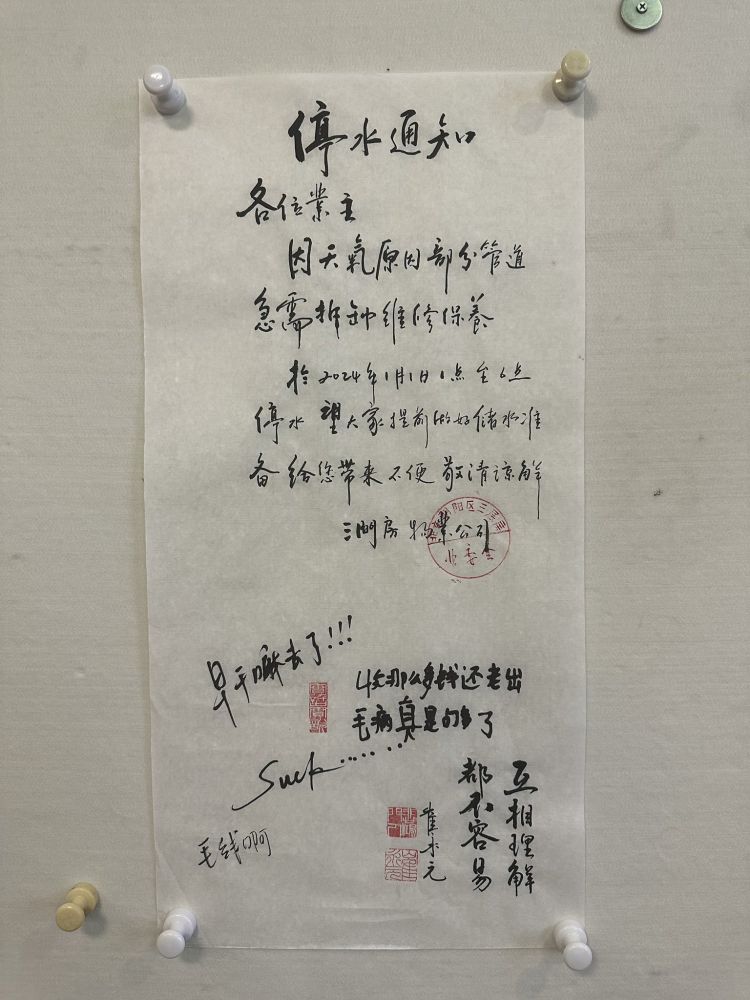 停水通知
各位業主
因天氣原因部分管道
急需拆卸維修保養
於2024年1月1日1点至6点
停水 望大家提前做好储水准
备 给您带来不便 敬请谅解
三間房物業公司
阳区三间房
业委会
早干嘛去了!!!
收那么多钱还老出
毛病真是够了
Suck......
毛线啊
互相理解
都不容易
崔永元